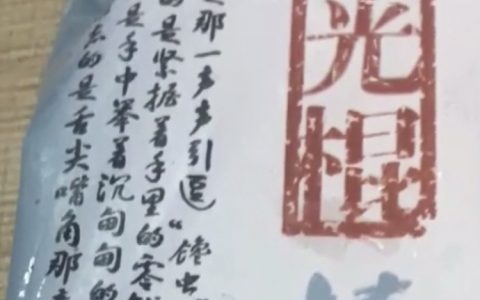 光棍
那一声声引逗"馋虫
的是紧握着手里的零
是手中攀着沉甸甸的
的是舌尖嘴角那